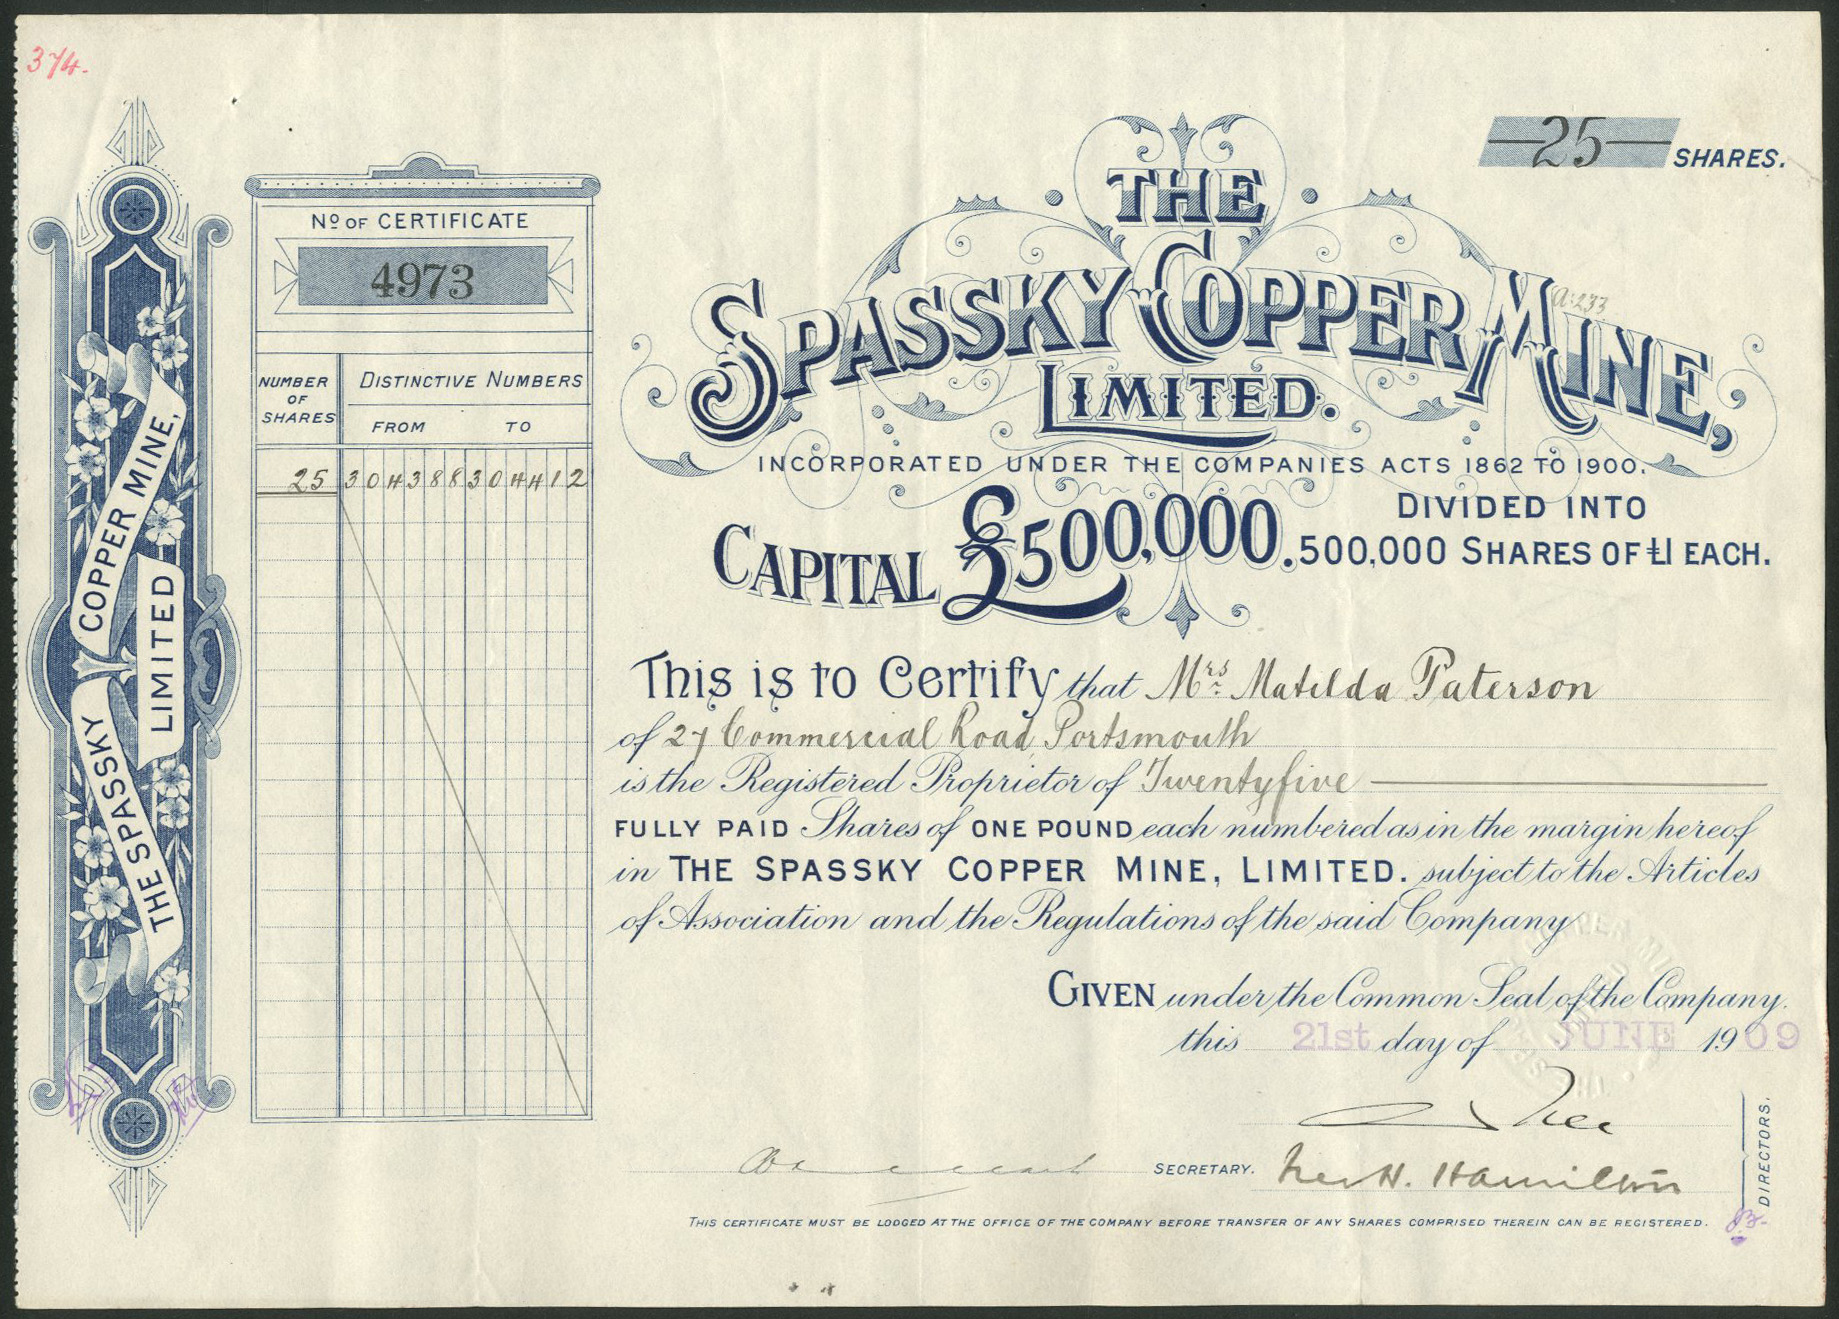 374.
25 SHARES.
THE
SPASSKY COPPER MINE,
A.233
LIMITED.
INCORPORATED UNDER THE COMPANIES ACTS 1862 TO 1900.
CAPITAL £500,000. DIVIDED INTO
500,000 SHARES OF £1 EACH.
Nº OF CERTIFICATE
4973
NUMBER OF SHARES DISTINCTIVE NUMBERS
FROM TO
25 304388 304412
THE SPASSKY COPPER MINE,
LIMITED
This is to Certify that Mrs Matilda Paterson
of 27 Commercial Road, Portsmouth
is the Registered Proprietor of Twentyfive
FULLY PAID Shares of ONE POUND each numbered as in the margin hereof
in THE SPASSKY COPPER MINE, LIMITED. subject to the Articles
of Association and the Regulations of the said Company
GIVEN under the Common Seal of the Company.
this 21st day of JUNE 1909
SECRETARY. H. Hamilton
DIRECTORS.
THIS CERTIFICATE MUST BE LODGED AT THE OFFICE OF THE COMPANY BEFORE TRANSFER OF ANY SHARES COMPRISED THEREIN CAN BE REGISTERED.